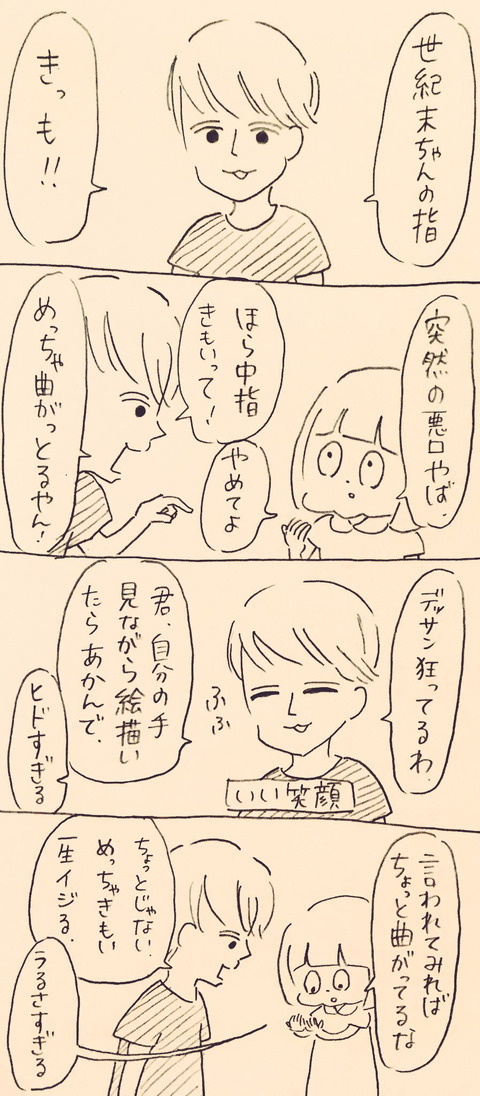 世紀末ちゃんの指
きっも!!
突然の悪口やば.
ほら中指
きもいって!
やめてよ
めっちゃ曲がっとるやん!
デッサン狂ってるわ.
ふふ
いい笑顔
君、自分の手
見ながら絵描い
たらあかんで.
ヒドすぎる
言われてみれば
ちょっと曲がってるな
ちょっとじゃない.
めっちゃきもい
一生イジる.
うるさすぎる